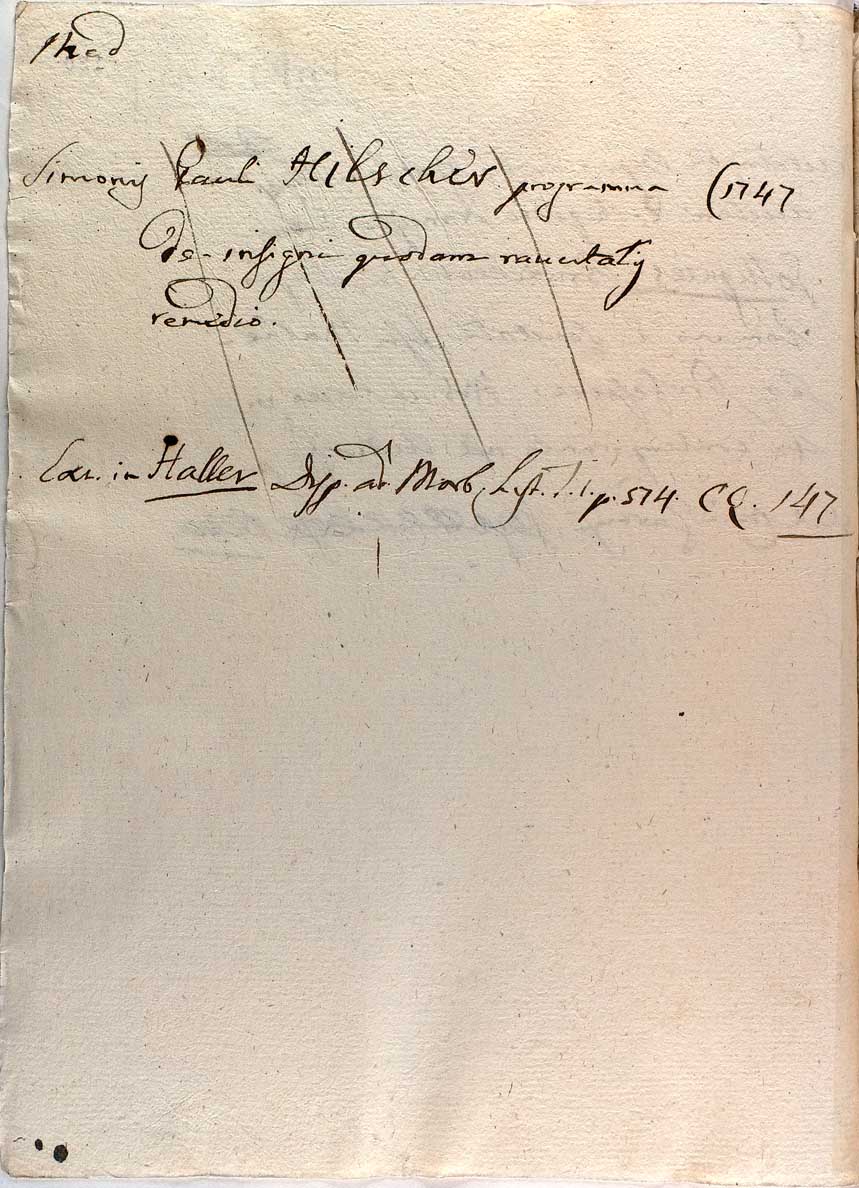 Med
Simonis Pauli Hilscher programma (1747
de insigni quodam raucitatis
remedio.
Ext. in Haller Disp. ad Morb. hist. T. 1. p. 574. CQ. 147